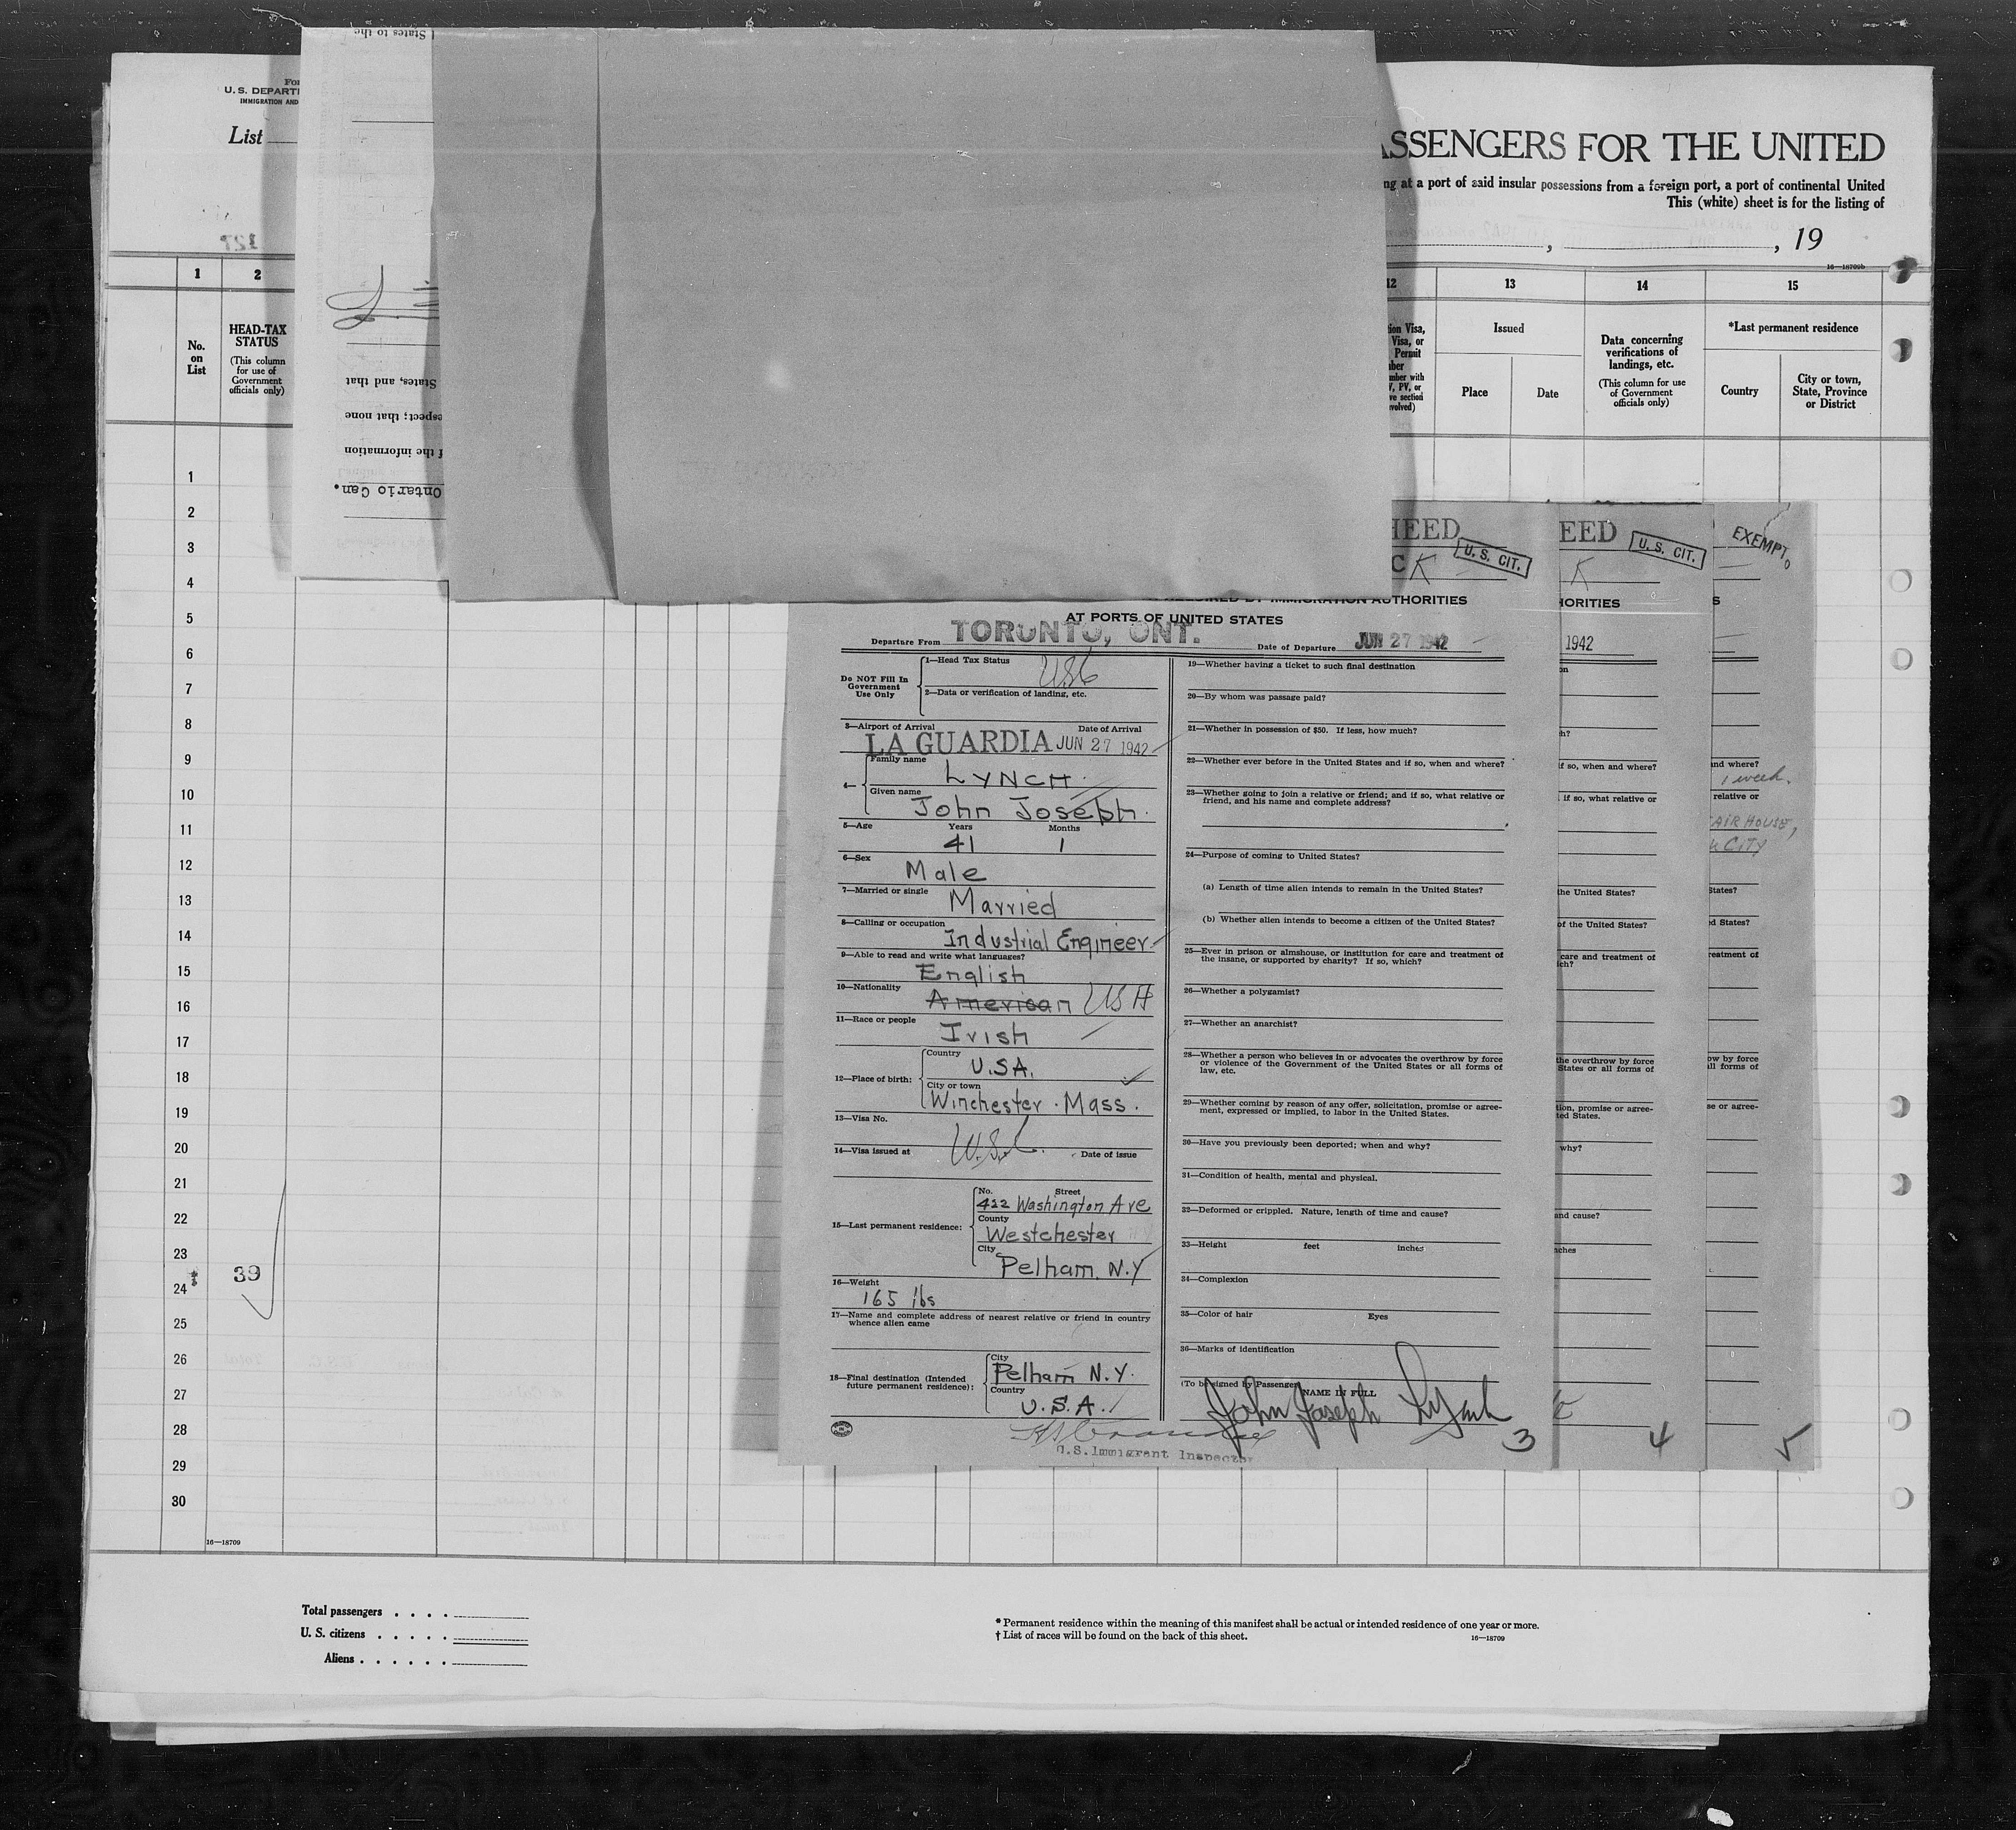 States to the
U. S. DEPARTM
IMMIGRATION AND
List
ASSENGERS FOR THE UNITED
ng at a port of said insular possessions from a foreign port, a port of continental United
This (white) sheet is for the listing of
, , 19
16—18709b
127
1 2 12 13 14 15
No. on List
HEAD-TAX STATUS
(This column for use of Government officials only)
States, and that
spect; that none
f the information
Ontario Can.
tion Visa,
Visa, or
Permit
mber
mber with
V, PV, or
ve section
nvolved)
Issued
Place
Date
Data concerning verifications of landings, etc.
(This column for use of Government officials only)
*Last permanent residence
Country
City or town, State, Province or District
1
2
3
4
5
6
7
8
9
10
11
12
13
14
15
16
17
18
19
20
21
22
23
39
24
25
26
27
28
29
30
16—18709
HEED
U. S. CIT.
CK
REQUIRED BY IMMIGRATION AUTHORITIES
AT PORTS OF UNITED STATES
Departure From TORONTO, ONT. Date of Departure JUN 27 1942
Do NOT Fill In Government Use Only
1—Head Tax Status USC
2—Data or verification of landing, etc.
3—Airport of Arrival Date of Arrival
LA GUARDIA JUN 27 1942
4— Family name LYNCH
Given name John Joseph.
5—Age Years Months
41 1
6—Sex
Male
7—Married or single
Married
8—Calling or occupation
Industrial Engineer
9—Able to read and write what languages?
English
10—Nationality
American USA
11—Race or people
Irish
12—Place of birth: Country
U.S.A.
City or town
Winchester. Mass.
13—Visa No.
U.S.C.
14—Visa issued at Date of issue
15—Last permanent residence: No. Street
422 Washington Ave
County
Westchester
City
Pelham. N.Y
16—Weight
165 lbs
17—Name and complete address of nearest relative or friend in country
whence alien came
18—Final destination (Intended future permanent residence): City
Pelham N.Y.
Country
U.S.A.
U.S.Immigrant Inspector
19—Whether having a ticket to such final destination
20—By whom was passage paid?
21—Whether in possession of $50. If less, how much?
22—Whether ever before in the United States and if so, when and where?
23—Whether going to join a relative or friend; and if so, what relative or
friend, and his name and complete address?
24—Purpose of coming to United States?
(a) Length of time alien intends to remain in the United States?
(b) Whether alien intends to become a citizen of the United States?
25—Ever in prison or almshouse, or institution for care and treatment of
the insane, or supported by charity? If so, which?
26—Whether a polygamist?
27—Whether an anarchist?
28—Whether a person who believes in or advocates the overthrow by force
or violence of the Government of the United States or all forms of
law, etc.
29—Whether coming by reason of any offer, solicitation, promise or agree-
ment, expressed or implied, to labor in the United States.
30—Have you previously been deported; when and why?
31—Condition of health, mental and physical.
32—Deformed or crippled. Nature, length of time and cause?
33—Height feet inches
34—Complexion
35—Color of hair Eyes
36—Marks of identification
(To be signed by Passenger) NAME IN FULL
John Joseph Lynch
3
EED
U. S. CIT.
K
HORITIES
1942
on
h?
if so, when and where?
if so, what relative or
the United States?
of the United States?
care and treatment of
ich?
the overthrow by force
States or all forms of
tion, promise or agree-
ted States.
why?
and cause?
nches
4
EXEMPT
S
and where?
1 week.
relative or
FAIR HOUSE,
CITY
States?
ed States?
reatment of
ow by force
all forms of
se or agree-
5
Total passengers
U. S. citizens
Aliens
* Permanent residence within the meaning of this manifest shall be actual or intended residence of one year or more.
† List of races will be found on the back of this sheet.
16—18709